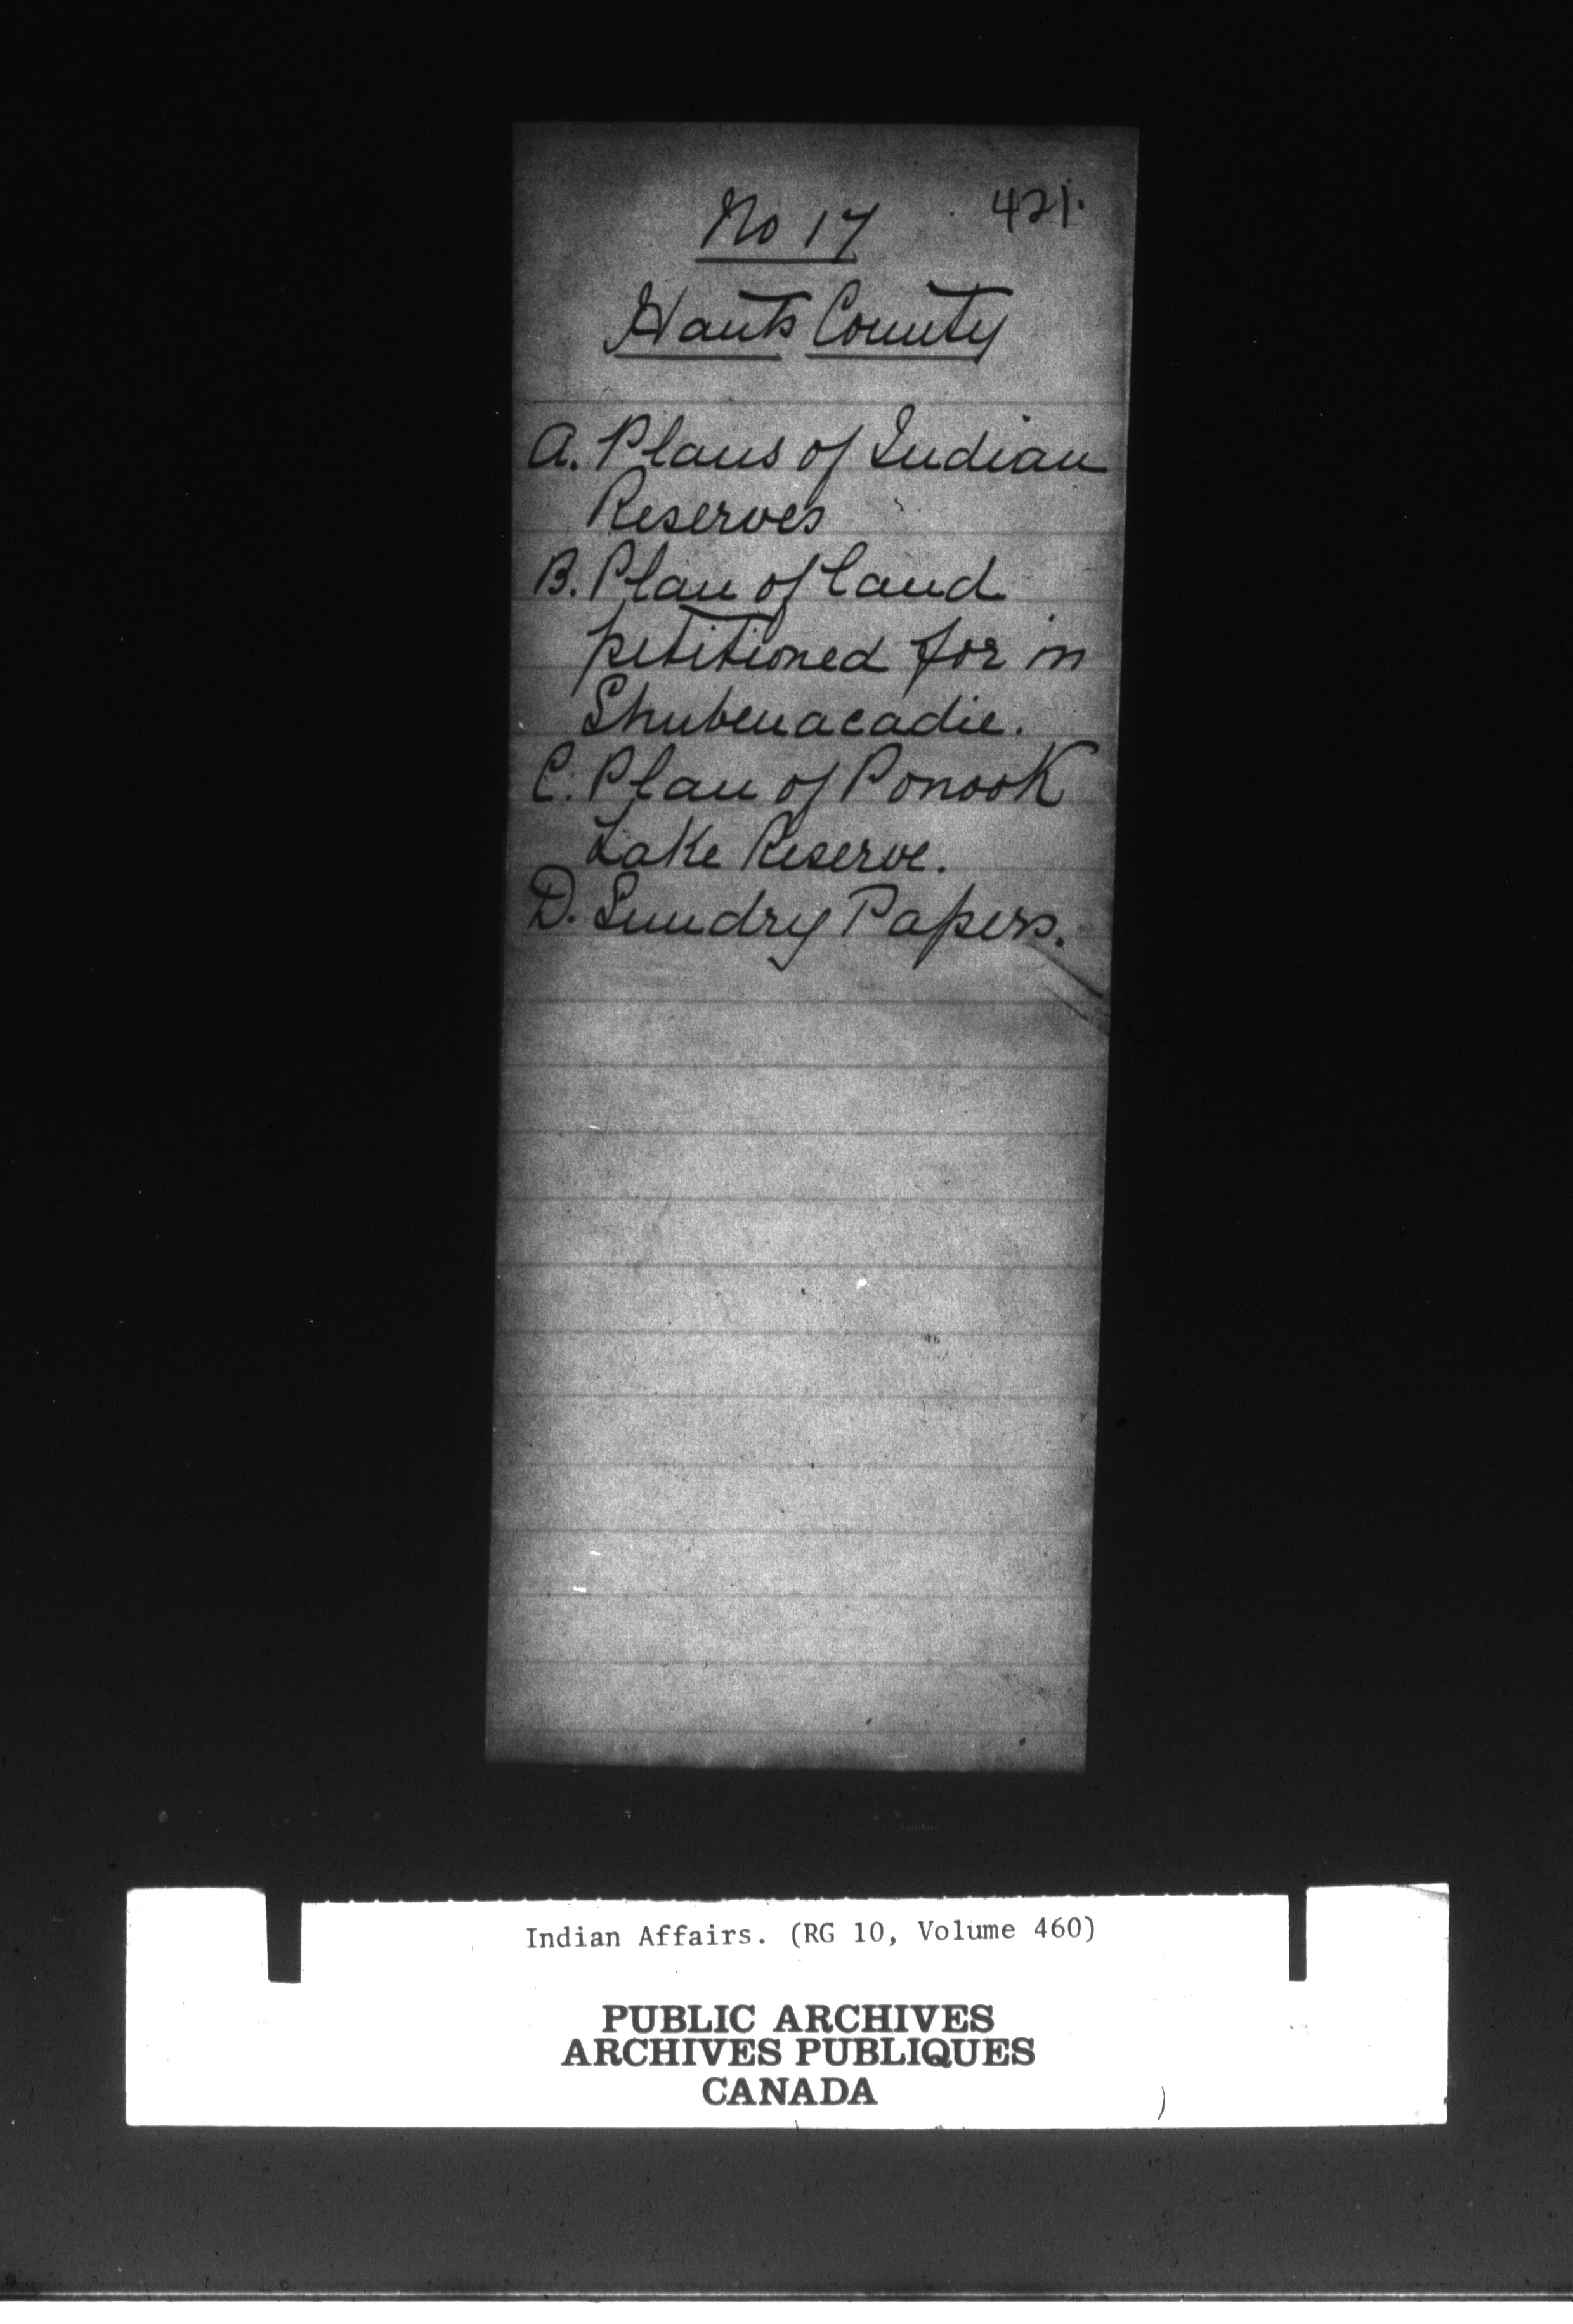 421.
No 17
Hants County
A. Plans of Indian
Reserves
B. Plan of land
petitioned for in
Shubenacadie.
C. Plan of Ponook
Lake Reserve.
D. Sundry Papers.
Indian Affairs. (RG 10, Volume 460)
PUBLIC ARCHIVES
ARCHIVES PUBLIQUES
CANADA